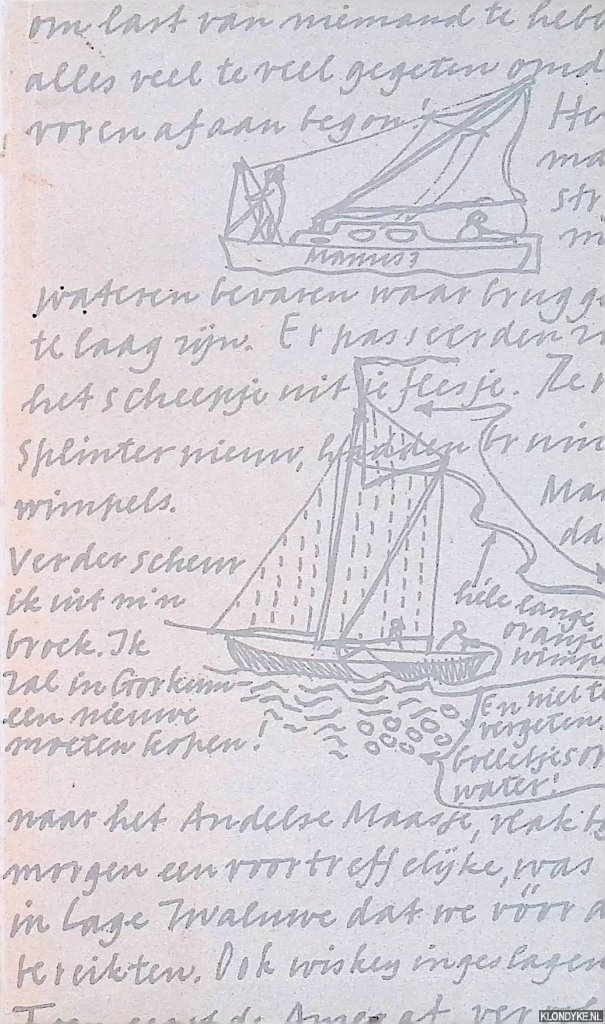 om last van niemand te hebb
alles veel te veel gegeten omd
voren af aan begon!
He
ma
str
m
Manus 3
wateren bevaren waar brugge
te laag zijn. Er passeerden
het scheepje uit je flesje. Ze
Splinternieuw, hadden er
wimpels.
Ma
da
Verder scheur
ik uit m'n
broek. Ik
zal in Gorkum
een nieuwe
moeten kopen!
héle lange
oranje
wimpe
En niet te
vergeten
belletjes op
water!
naar het Andelse Maasje, vlak b
morgen een voortreffelijke, was
in Lage Zwaluwe dat we vóór
bereikten. Ook wiskey ingeslagen
Amer af
KLONDYKE.NL